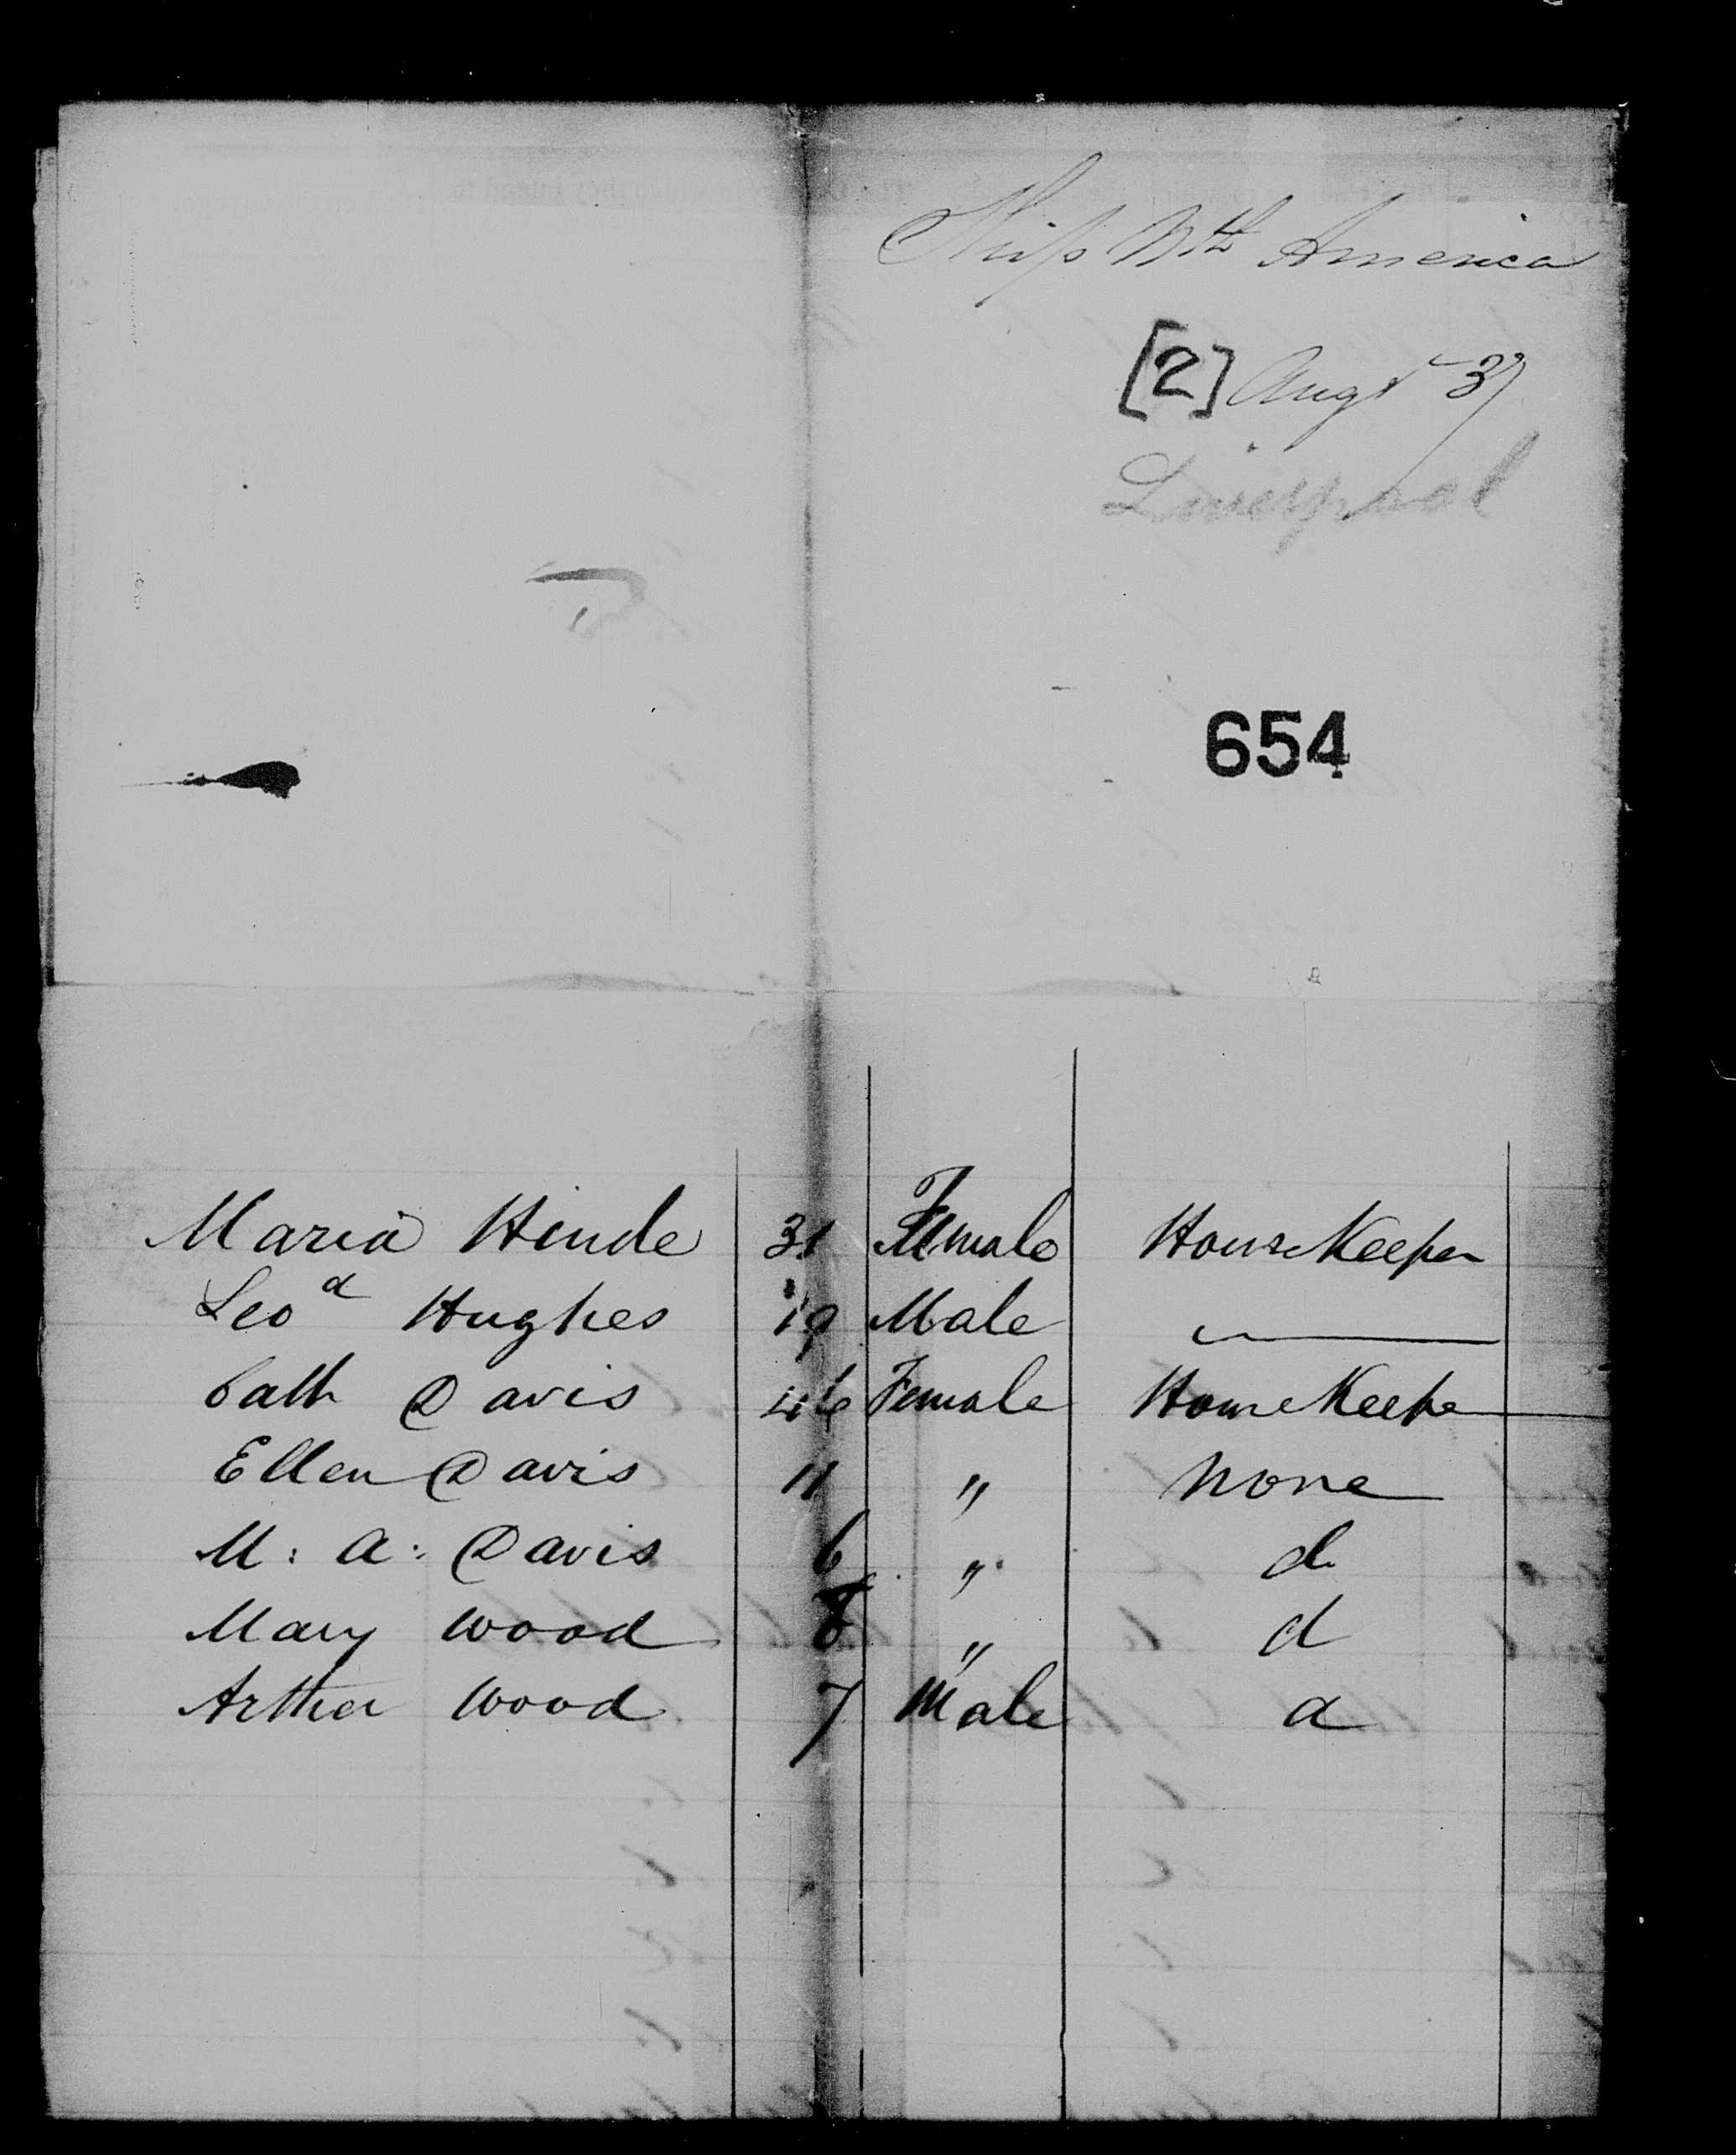 Ship Nth America
[2] Augt 37
Liverpool
654
Maria Hinde 31 Female HouseKeeper
Leod Hughes 19 Male
Cath Davis 46 Female HouseKeepe
Ellen Davis 11 " None
M: A: Davis 6 " do
Mary Wood 8 " d
Arther Wood 7 Male d